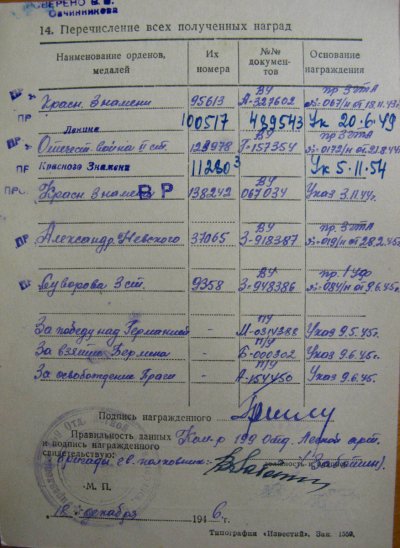 ПРОВЕРЕНО В.В.
Овчинникова
14. Перечисление всех полученных наград
Наименование орденов, медалей
Их номера
№№ документов
Основание награждения
ВР Красн. Знамени 95613 ВУ А-327602 пр. 3 ТА № 067/н от 18.11.43г.
ПР Ленина 100517 489543 Ук 20.6.49
ПР Отечест. войны II ст. ВУ пр. 3 ТА
Красного Знамени 11280³ Ук 5.11.54
Красн. Знамени ВР 138242 ВУ 067034 Указ 3.11.44г.
ПР Александр. Невского 37065 ВУ З-918387 пр. 3 ТА № 019/н от 28.2.45г.
ВР Суворова 3 ст. 9358 ВУ З-948386 пр. 1 УФ № 084/н от 9.6.45г.
За победу над Германией - М-0314388 Указ 9.5.45г.
За взятие Берлина - П/У Указ 9.6.45г.
За освобождение Праги - П/У А-154450 Указ 9.6.45г.
Подпись награжденного
Правильность данных Ком-р 199 Отд. Легкой арт.
и подписи награжденного
свидетельствую: Бригады, гв. полковник:
М. П.
12 декабря 1946 г.
Типография «Известий». Зак. 1559.